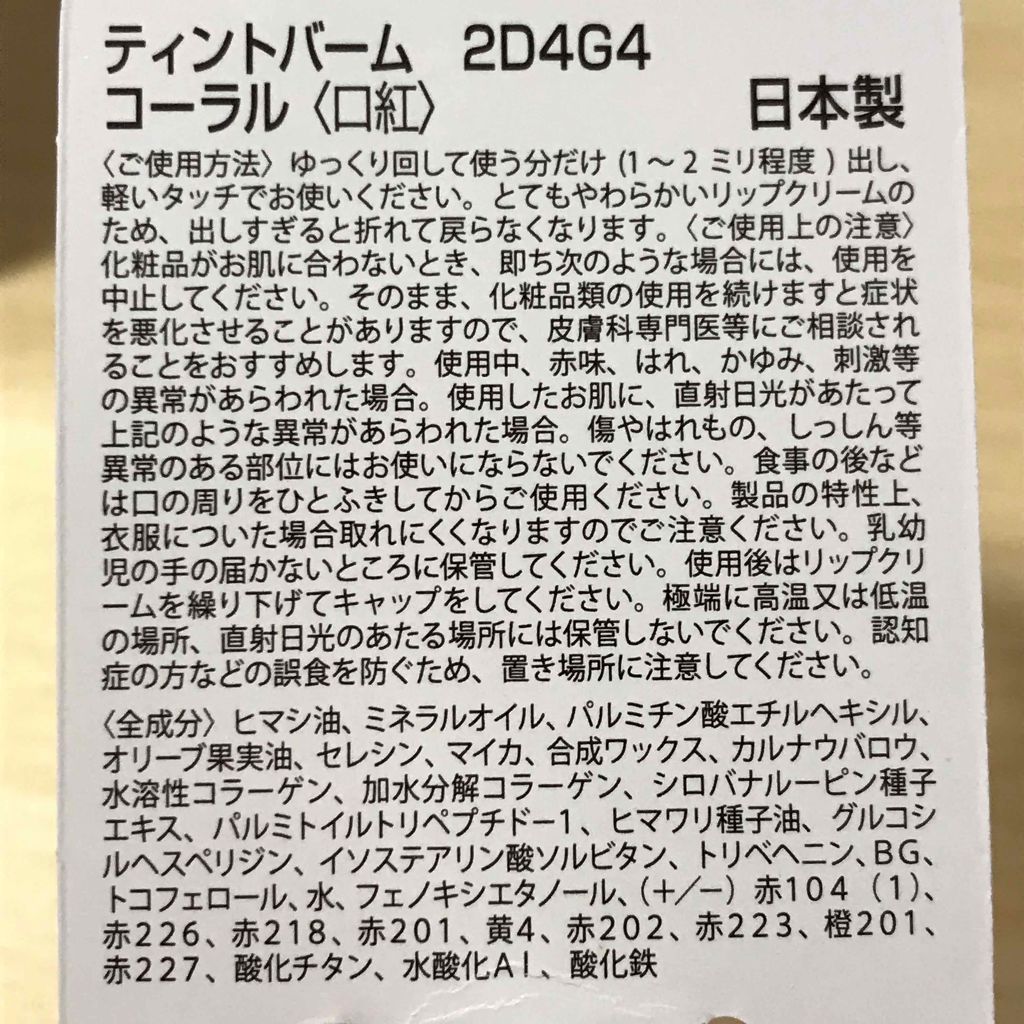 ティントバーム　2D4G4
コーラル〈口紅〉　日本製
〈ご使用方法〉ゆっくり回して使う分だけ (1～2 ミリ程度 ) 出し、
軽いタッチでお使いください。とてもやわらかいリップクリームの
ため、出しすぎると折れて戻らなくなります。〈ご使用上の注意〉
化粧品がお肌に合わないとき、即ち次のような場合には、使用を
中止してください。そのまま、化粧品類の使用を続けますと症状
を悪化させることがありますので、皮膚科専門医等にご相談され
ることをおすすめします。使用中、赤味、はれ、かゆみ、刺激等
の異常があらわれた場合。使用したお肌に、直射日光があたって
上記のような異常があらわれた場合。傷やはれもの、しっしん等
異常のある部位にはお使いにならないでください。食事の後など
は口の周りをひとふきしてからご使用ください。製品の特性上、
衣服についた場合取れにくくなりますのでご注意ください。乳幼
児の手の届かないところに保管してください。使用後はリップクリ
ームを繰り下げてキャップをしてください。極端に高温又は低温
の場所、直射日光のあたる場所には保管しないでください。認知
症の方などの誤食を防ぐため、置き場所に注意してください。
〈全成分〉ヒマシ油、ミネラルオイル、パルミチン酸エチルヘキシル、
オリーブ果実油、セレシン、マイカ、合成ワックス、カルナウバロウ、
水溶性コラーゲン、加水分解コラーゲン、シロバナルーピン種子
エキス、パルミトイルトリペプチドー1、ヒマワリ種子油、グルコシ
ルヘスペリジン、イソステアリン酸ソルビタン、トリベヘニン、BG、
トコフェロール、水、フェノキシエタノール、（+／−）赤104（1）、
赤226、赤218、赤201、黄4、赤202、赤223、橙201、
赤227、酸化チタン、水酸化Al、酸化鉄